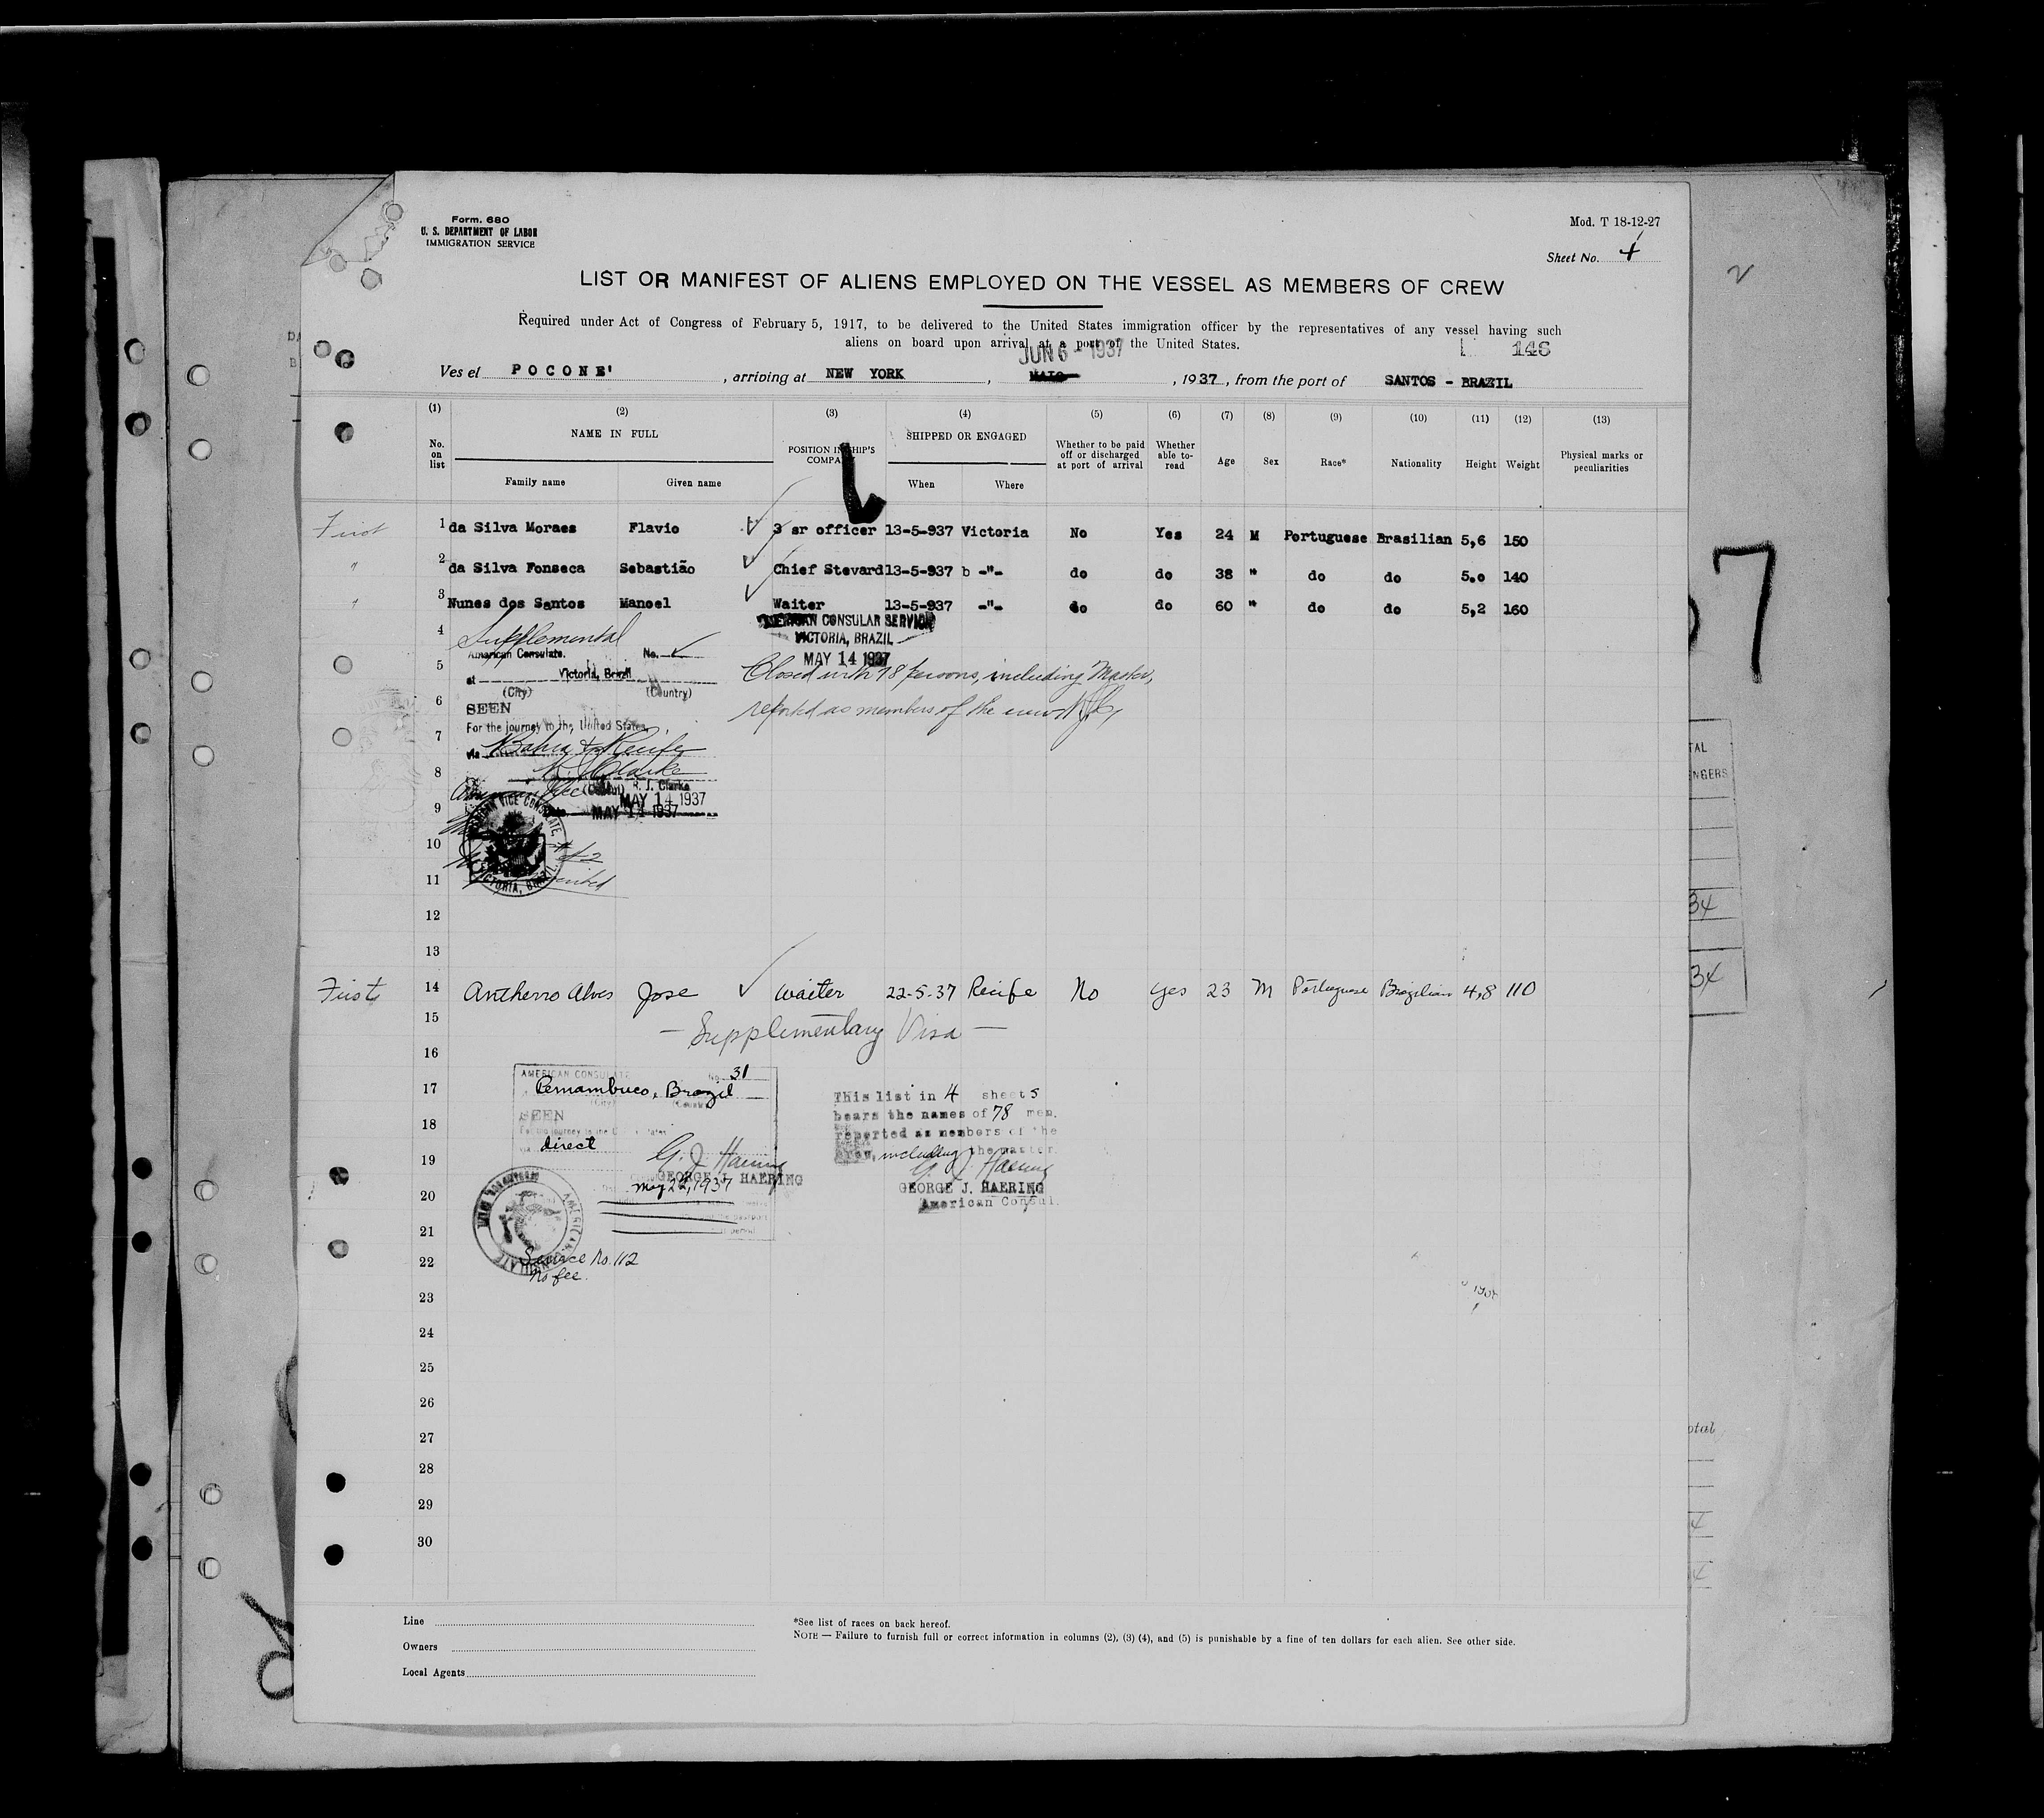 Form. 680
U. S. DEPARTMENT OF LABOR
IMMIGRATION SERVICE
Mod. T 18-12-27
Sheet No. 4
LIST OR MANIFEST OF ALIENS EMPLOYED ON THE VESSEL AS MEMBERS OF CREW
Required under Act of Congress of February 5, 1917, to be delivered to the United States immigration officer by the representatives of any vessel having such
aliens on board upon arrival at a port of the United States.
JUN 6 - 1937
146
Ves el POCONE' , arriving at NEW YORK , MAIO , 1937 , from the port of SANTOS - BRAZIL
(1) (2) (3) (4) (5) (6) (7) (8) (9) (10) (11) (12) (13)
No. on list
NAME IN FULL
Family name Given name
POSITION IN SHIP'S COMPANY
SHIPPED OR ENGAGED
When Where
Whether to be paid off or discharged at port of arrival
Whether able to- read
Age Sex Race* Nationality Height Weight
Physical marks or peculiarities
First 1 da Silva Moraes Flavio 3 sr officer 13-5-937 Victoria No Yes 24 M Portuguese Brasilian 5,6 150
" 2 da Silva Fonseca Sebastião Chief Stevard 13-5-937 b -"- do do 38 " do do 5.0 140
3 Nunes dos Santos Manoel Waiter 13-5-937 -"- do do 60 " do do 5,2 160
AMERICAN CONSULAR SERVICE
VICTORIA, BRAZIL
MAY 14 1937
4 Supplemental
American Consulate. No.
5 at Victoria, Brazil
(City) (Country)
Closed with 78 persons, including Master,
reported as members of the crew
6 SEEN
For the journey to the United States,
7 via Bahia & Recife
8 R. J. Clarke
(Consul) R. J. Clarke
MAY 14 1937
9 MAY 14 1937
AMERICAN VICE CONSULATE,
VICTORIA, BRAZIL
10
11
12
13
First 14 Antherro Alves Jose waiter 22-5-37 Recife No yes 23 M Portuguese Brazilian 4,8 110
15 — Supplementary Visa —
16
AMERICAN CONSULATE No. 31
17 Pernambuco, Brazil
(City) (Country)
SEEN
18 For the journey to the United States
via direct
19 G. J. Haering
GEORGE J. HAERING
20 May 22, 1937
21
22 Service No. 112
No fee.
This list in 4 sheets
bears the names of 78 men,
reported as members of the
crew, including the master.
G. J. Haering
GEORGE J. HAERING
American Consul.
AMERICAN CONSULATE
23
24
25
26
27
28
29
30
Line
Owners
Local Agents
*See list of races on back hereof.
NOTE — Failure to furnish full or correct information in columns (2), (3) (4), and (5) is punishable by a fine of ten dollars for each alien. See other side.
7
2
TAL
NGERS
34
34
otal